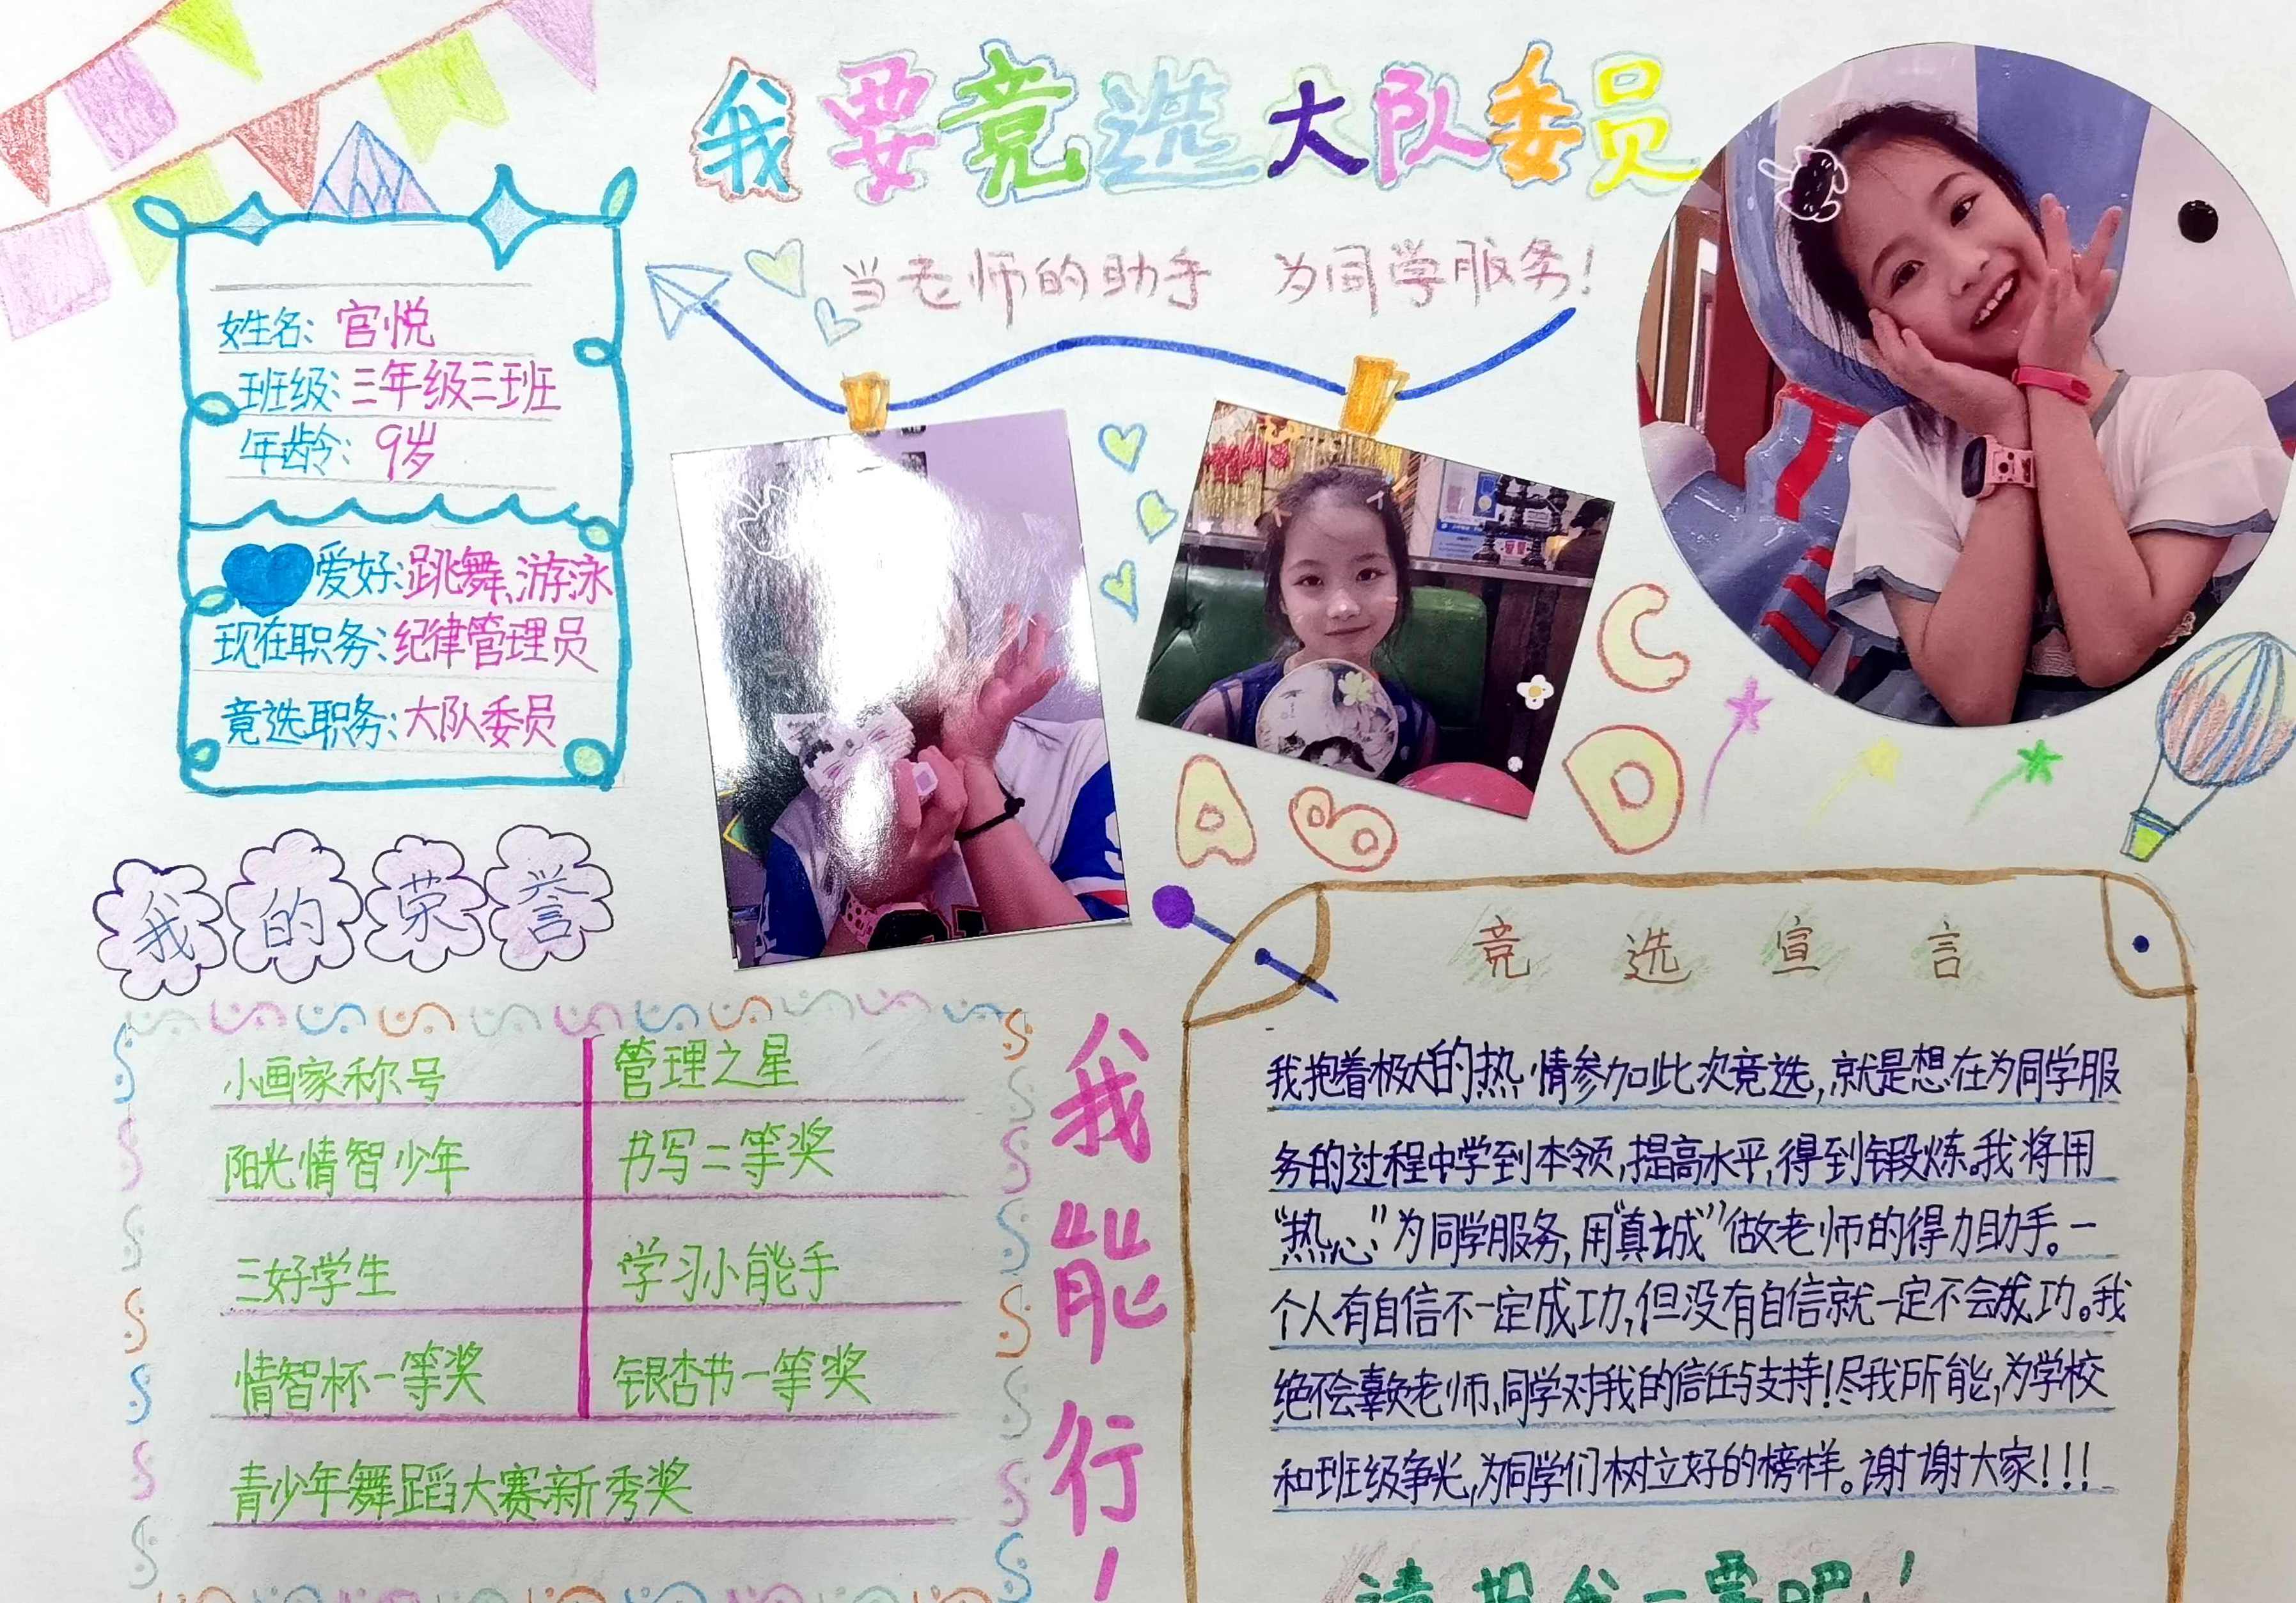 我要竞选大队委员
当老师的助手 为同学服务!
姓名: 官悦
班级: 三年级三班
年龄: 9岁
爱好: 跳舞、游泳
现在职务: 纪律管理员
竟选职务: 大队委员
A B C D
我的荣誉
小画家称号 管理之星
阳光情智少年 书写二等奖
三好学生 学习小能手
情智杯一等奖 银杏书一等奖
青少年舞蹈大赛新秀奖
我能行!
竞选宣言
我抱着极大的热情参加此次竞选,就是想在为同学服
务的过程中学到本领,提高水平,得到锻炼。我将用
“热心”为同学服务,用“真城”做老师的得力助手。一
个人有自信不一定成功,但没有自信就一定不会成功。我
绝不会辜负老师、同学对我的信任与支持!尽我所能,为学校
和班级争光,为同学们树立好的榜样。谢谢大家!!!
请投我一票吧!